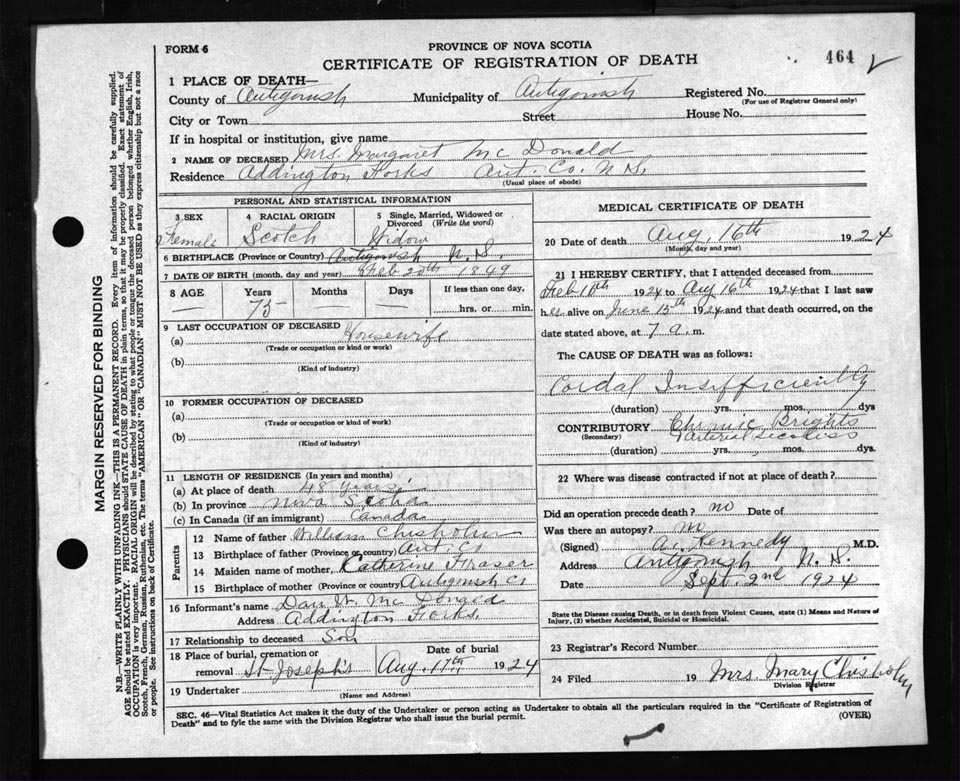 FORM 6
PROVINCE OF NOVA SCOTIA
CERTIFICATE OF REGISTRATION OF DEATH
464
1 PLACE OF DEATH—
County of Antigonish Municipality of Antigonish Registered No.
(For use of Registrar General only)
City or Town Street House No.
If in hospital or institution, give name
2 NAME OF DECEASED Mrs. Margaret Mc Donald
Residence Addington Forks Ant. Co. N.S.
(Usual place of abode)
PERSONAL AND STATISTICAL INFORMATION
3 SEX 4 RACIAL ORIGIN 5 Single, Married, Widowed or Divorced (Write the word)
Female Scotch Widow
6 BIRTHPLACE (Province or Country) Antigonish N.S.
7 DATE OF BIRTH (month, day and year) Feb 20th 1849
8 AGE Years Months Days If less than one day,
— 75 — hrs. or min.
9 LAST OCCUPATION OF DECEASED
(a) Housewife
(Trade or occupation or kind or work)
(b)
(Kind of industry)
10 FORMER OCCUPATION OF DECEASED
(a)
(Trade or occupation or kind of work)
(b)
(Kind of industry)
11 LENGTH OF RESIDENCE (In years and months)
(a) At place of death 48 years
(b) In province Nova Scotia
(c) In Canada (if an immigrant) Canada
Parents
12 Name of father William Chisholm
13 Birthplace of father (Province or country) Ant Co
14 Maiden name of mother, Katherine Fraser
15 Birthplace of mother (Province or country) Antigonish Co
16 Informant's name Dan W. Mc Donald
Address Addington Forks.
17 Relationship to deceased Son
18 Place of burial, cremation or removal St Joseph's Date of burial Aug. 17th 1924
19 Undertaker
(Name and Address)
MEDICAL CERTIFICATE OF DEATH
20 Date of death Aug, 16th 1924
(Month, day and year)
21 I HEREBY CERTIFY, that I attended deceased from
Feb 10th 1924 to Aug 16th 1924 that I last saw
h er alive on June 15th 1924 and that death occurred, on the
date stated above, at 7 a. m.
The CAUSE OF DEATH was as follows:
Cordal Insifficiently
(duration) yrs. mos. dys
CONTRIBUTORY Chronic Brights
(Secondary)
(duration) yrs. mos. dys.
22 Where was disease contracted if not at place of death?
Did an operation precede death? no Date of
Was there an autopsy? no
(Signed) Kennedy M.D.
Address Antigonish N.S.
Date Sept. 2nd 1924
State the Disease causing Death, or in death from Violent Causes, state (1) Means and Nature of
Injury, (2) whether Accidental, Suicidal or Homicidal.
23 Registrar's Record Number
24 Filed 19 Mrs. Mary Chisholm
Division Registrar
SEC. 46—Vital Statistics Act makes it the duty of the Undertaker or person acting as Undertaker to obtain all the particulars required in the "Certificate of Registration of
Death" and to fyle the same with the Division Registrar who shall issue the burial permit.
(OVER)
MARGIN RESERVED FOR BINDING
N.B.—WRITE PLAINLY WITH UNFADING INK—THIS IS A PERMANENT RECORD. Every item of information should be carefully supplied.
AGE should be stated EXACTLY. PHYSICIANS should STATE CAUSE OF DEATH in plain terms, so that it may be properly classified. Exact statement of
OCCUPATION is very important. RACIAL ORIGIN will be described by stating to what people or tongue the deceased person belonged whether English, Irish,
Scotch, French, German, Russian, Ruthenian, etc. The terms "AMERICAN" OR "CANADIAN" MUST NOT BE USED as they express citizenship but not a race
or people. See instructions on back of Certificate.